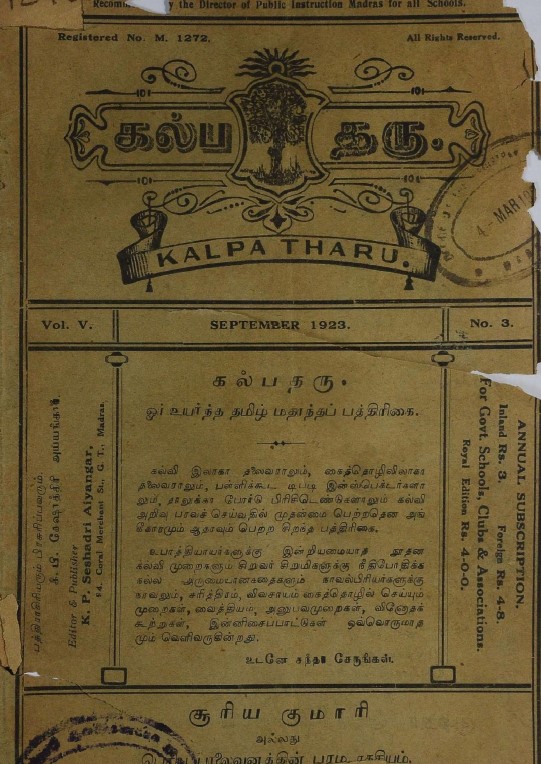 y the Director of Public Instruction Madras for all Schools.
Registered No. M. 1272.
All Rights Reserved.
கல்ப தரு.
KALPA THARU.
4 - MAR 19
Vol. V.
SEPTEMBER 1923.
No. 3.
பத்திராசிரியரும் பிரசுரிப்பவரும்.
Editor & Publisher
K. P. Seshadri Aiyangar,
84, Coral Merchant St., G. T., Madras.
கல்பதரு.
ஓர் உயர்ந்த தமிழ் மதாந்தப் பத்திரிகை.
கல்வி இலாகா தலைவராலும், கைத்தொழிலிலாகா
தலைவராலும், பள்ளிக்கூட டிபடி இன்ஸ்பெக்டர்களா
லும், தாலுக்கா போர்டு பிரிசிடெண்டுகளாலும் கல்வி
அறிவு பரவச் செய்வதில் முதன்மை பெற்றதென அங்
கீகாரமும் ஆதரவும் பெற்ற சிறந்த பத்திரிகை.
உபாத்தியாயர்களுக்கு இன்றியமையாத நூதன
கல்வி முறைகளும் சிறுவர் சிறுமிகளுக்கு நீதிபோதிக்க
நாவலும், சரித்திரம், விவசாயம் கைத்தொழில் செய்யும்
முறைகள், வைத்தியம், அனுபவமுறைகள், வினோதக்
கூற்றுகள், இன்னிசைப்பாட்டுகள் ஒவ்வொருமாத
மும் வெளிவருகின்றது.
உடனே சந்தா சேருங்கள்.
ANNUAL SUBSCRIPTION.
Inland Rs. 3. Foreign Rs. 4-8.
For Govt. Schools, Clubs & Associations.
Royal Edition Rs. 4-0-0.
சூரிய குமாரி
அல்லது